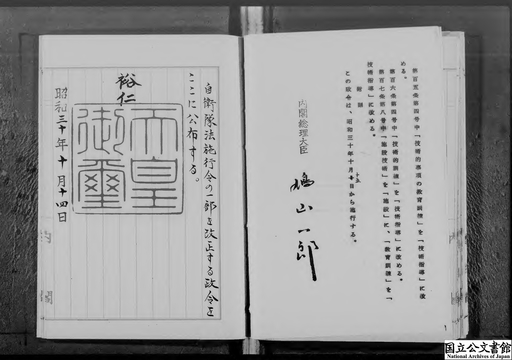 第百五条第四号中「技術的事項の教育訓練」を「技術指導」に改
める。
第百六条第四号中「技術的訓練」を「技術指導」に改める。
第百七条第八号中「施設技術」を「施設」に、「教育訓練」を「
技術指導」に改める。
附則
この政令は、昭和三十年十月十五日から施行する。
内閣総理大臣
鳩山一郎
自衛隊法施行令の一部を改正する政令を
ここに公布する。
裕仁
天皇
御璽
昭和三十年十月十四日
国立公文書館
National Archives of Japan